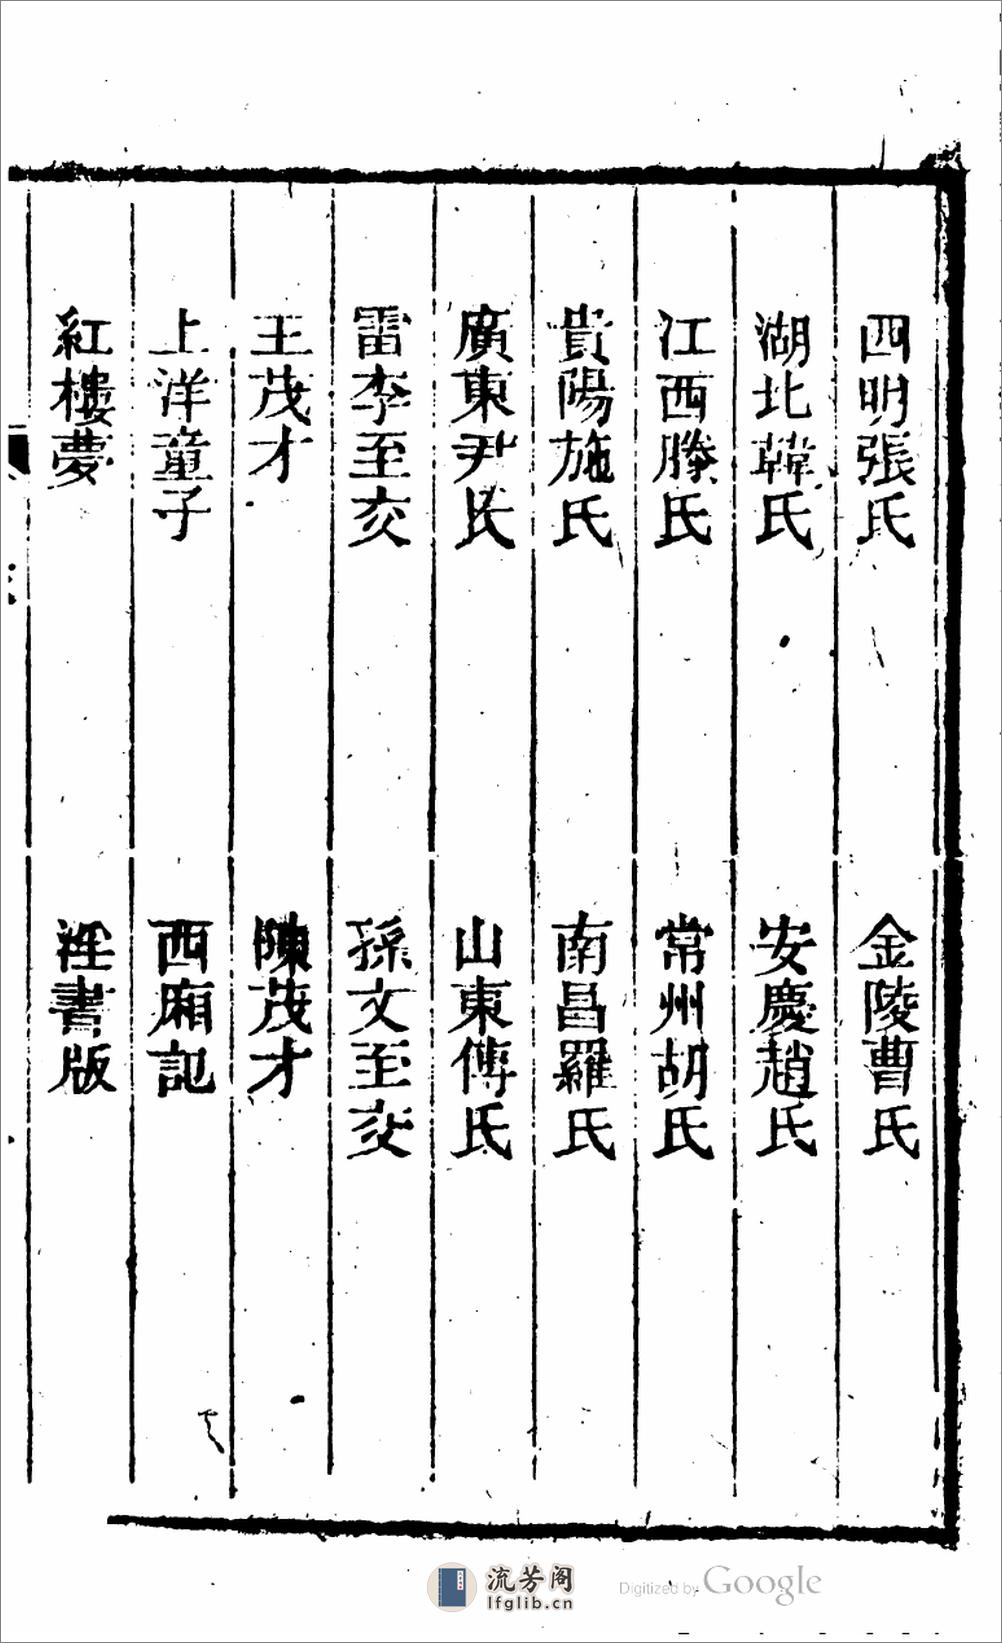 四明張氏　金陵曹氏
湖北韓氏　安慶趙氏
江西滕氏　常州胡氏
貴陽施氏　南昌羅氏
廣東尹氏　山東傅氏
雷李至交　孫文至交
王茂才　陳茂才
上洋童子　西廂記
紅樓夢　淫書版
流芳阁
lfglib.cn
Digitized by Google